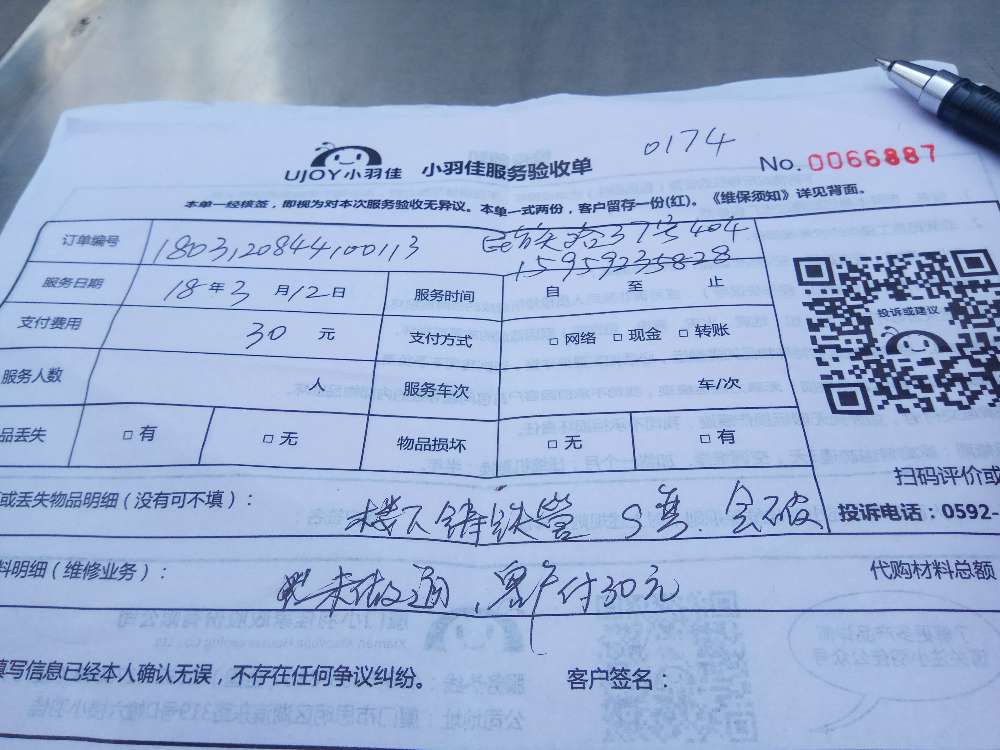 0174
UJOY小羽佳 小羽佳服务验收单 No. 0066887
本单一经核签，即视为对本次服务验收无异议。本单一式两份，客户留存一份(红)。《维保须知》详见背面。
订单编号 1803120844100113 民族路37号404
15959235828
服务日期 18年3月12日 服务时间 自 至 止
支付费用 30 元 支付方式 □网络 □现金 □转账
服务人数 人 服务车次 车/次
品丢失 □有 □无 物品损坏 □无 □有
投诉或建议
扫码评价或
投诉电话：0592-
或丢失物品明细（没有可不填）：
楼下铸铁管 S弯 会破
料明细（维修业务）： 代购材料总额
未做通，客户付30元
填写信息已经本人确认无误，不存在任何争议纠纷。 客户签名：